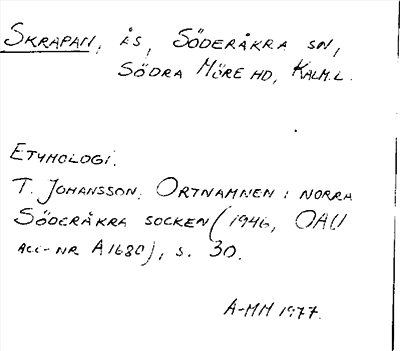 SKRAPAN, ÅS, SÖDERÅKRA SN,
SÖDRA MÖRE HD, KALM.L.
ETYMOLOGI.
T. JOHANSSON: ORTNAMNEN I NORRA
SÖDERÅKRA SOCKEN (1946, OAU
ACC-NR A1680), S. 30.
A-MM 1977.